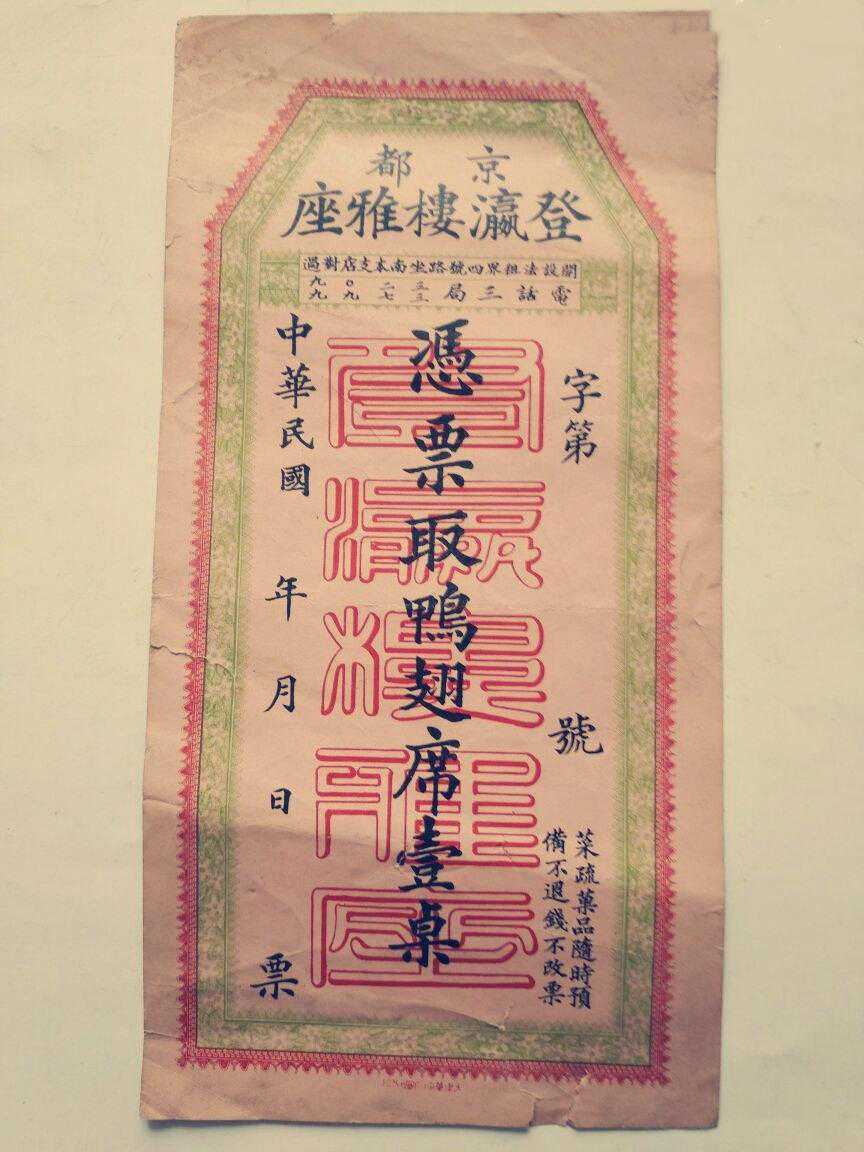 京都
登瀛樓雅座
開設法租界四號路坐南本支店對過
電話三局
五二〇九
三七九九
字第 號
菜疏菓品隨時預
備不退錢不改票
憑票取鴨翅席壹桌
登瀛樓雅座
中華民國 年 月 日 票